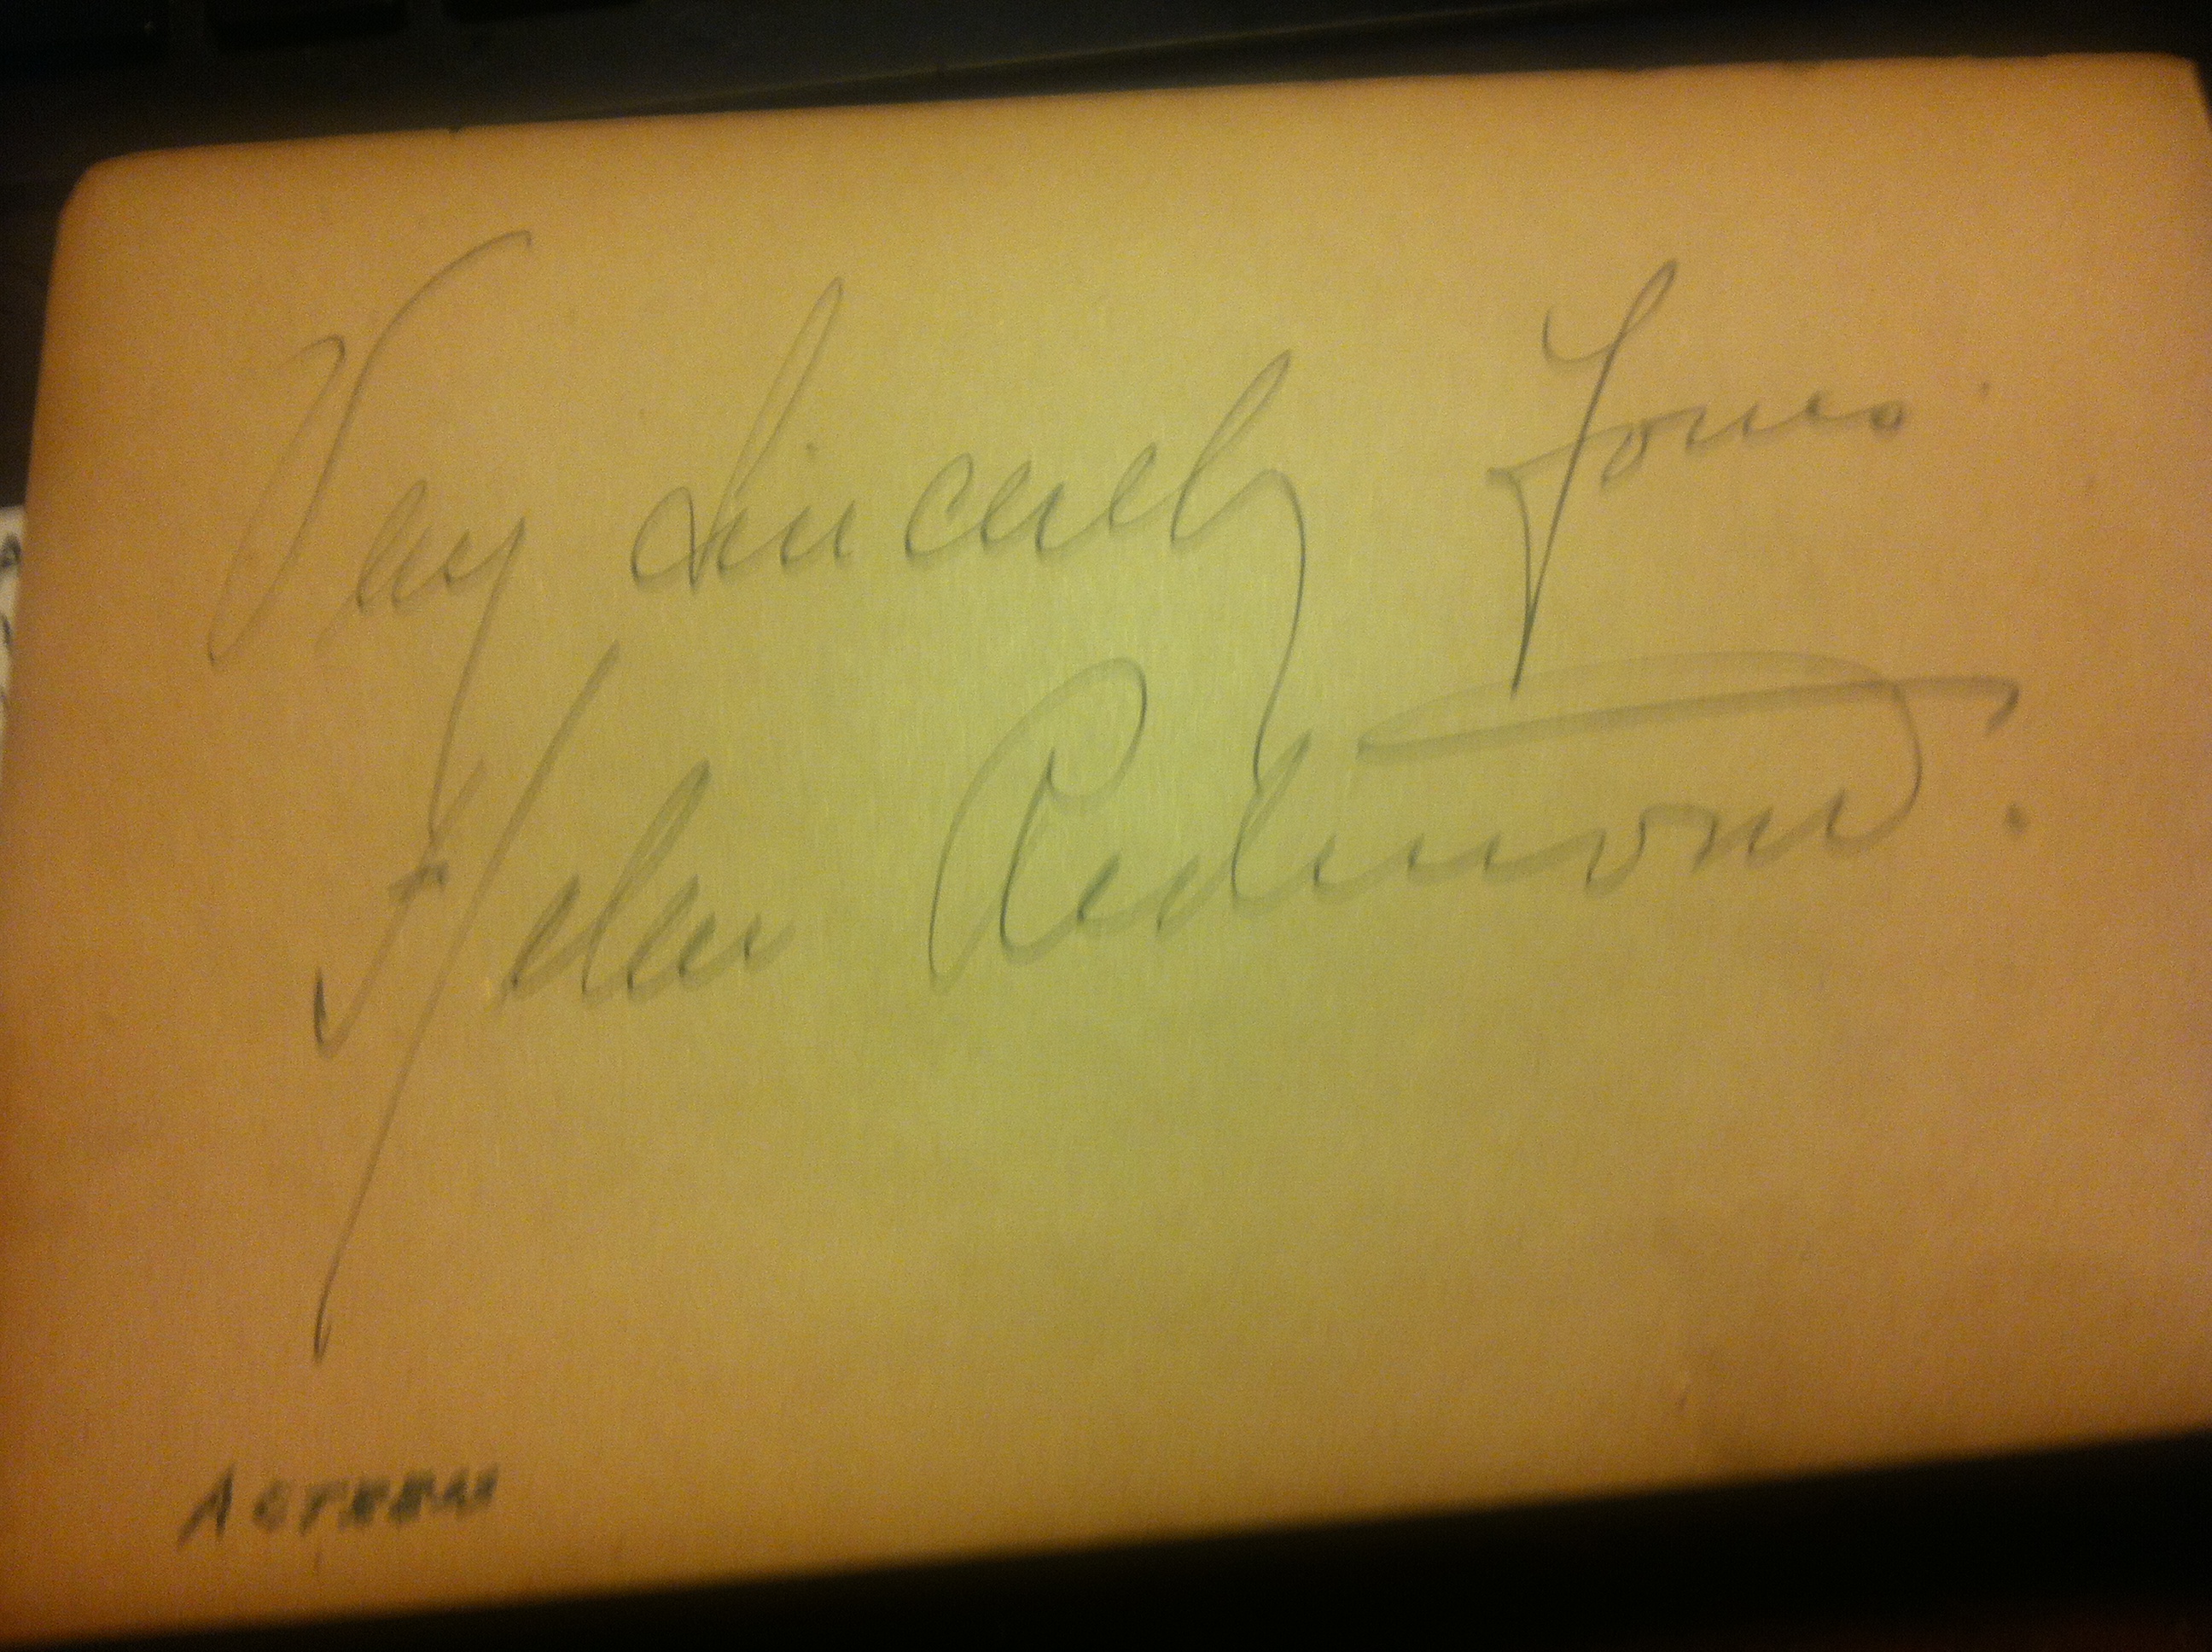 Very Sincerely Yours.
Helen Redmond.
ACTRESS